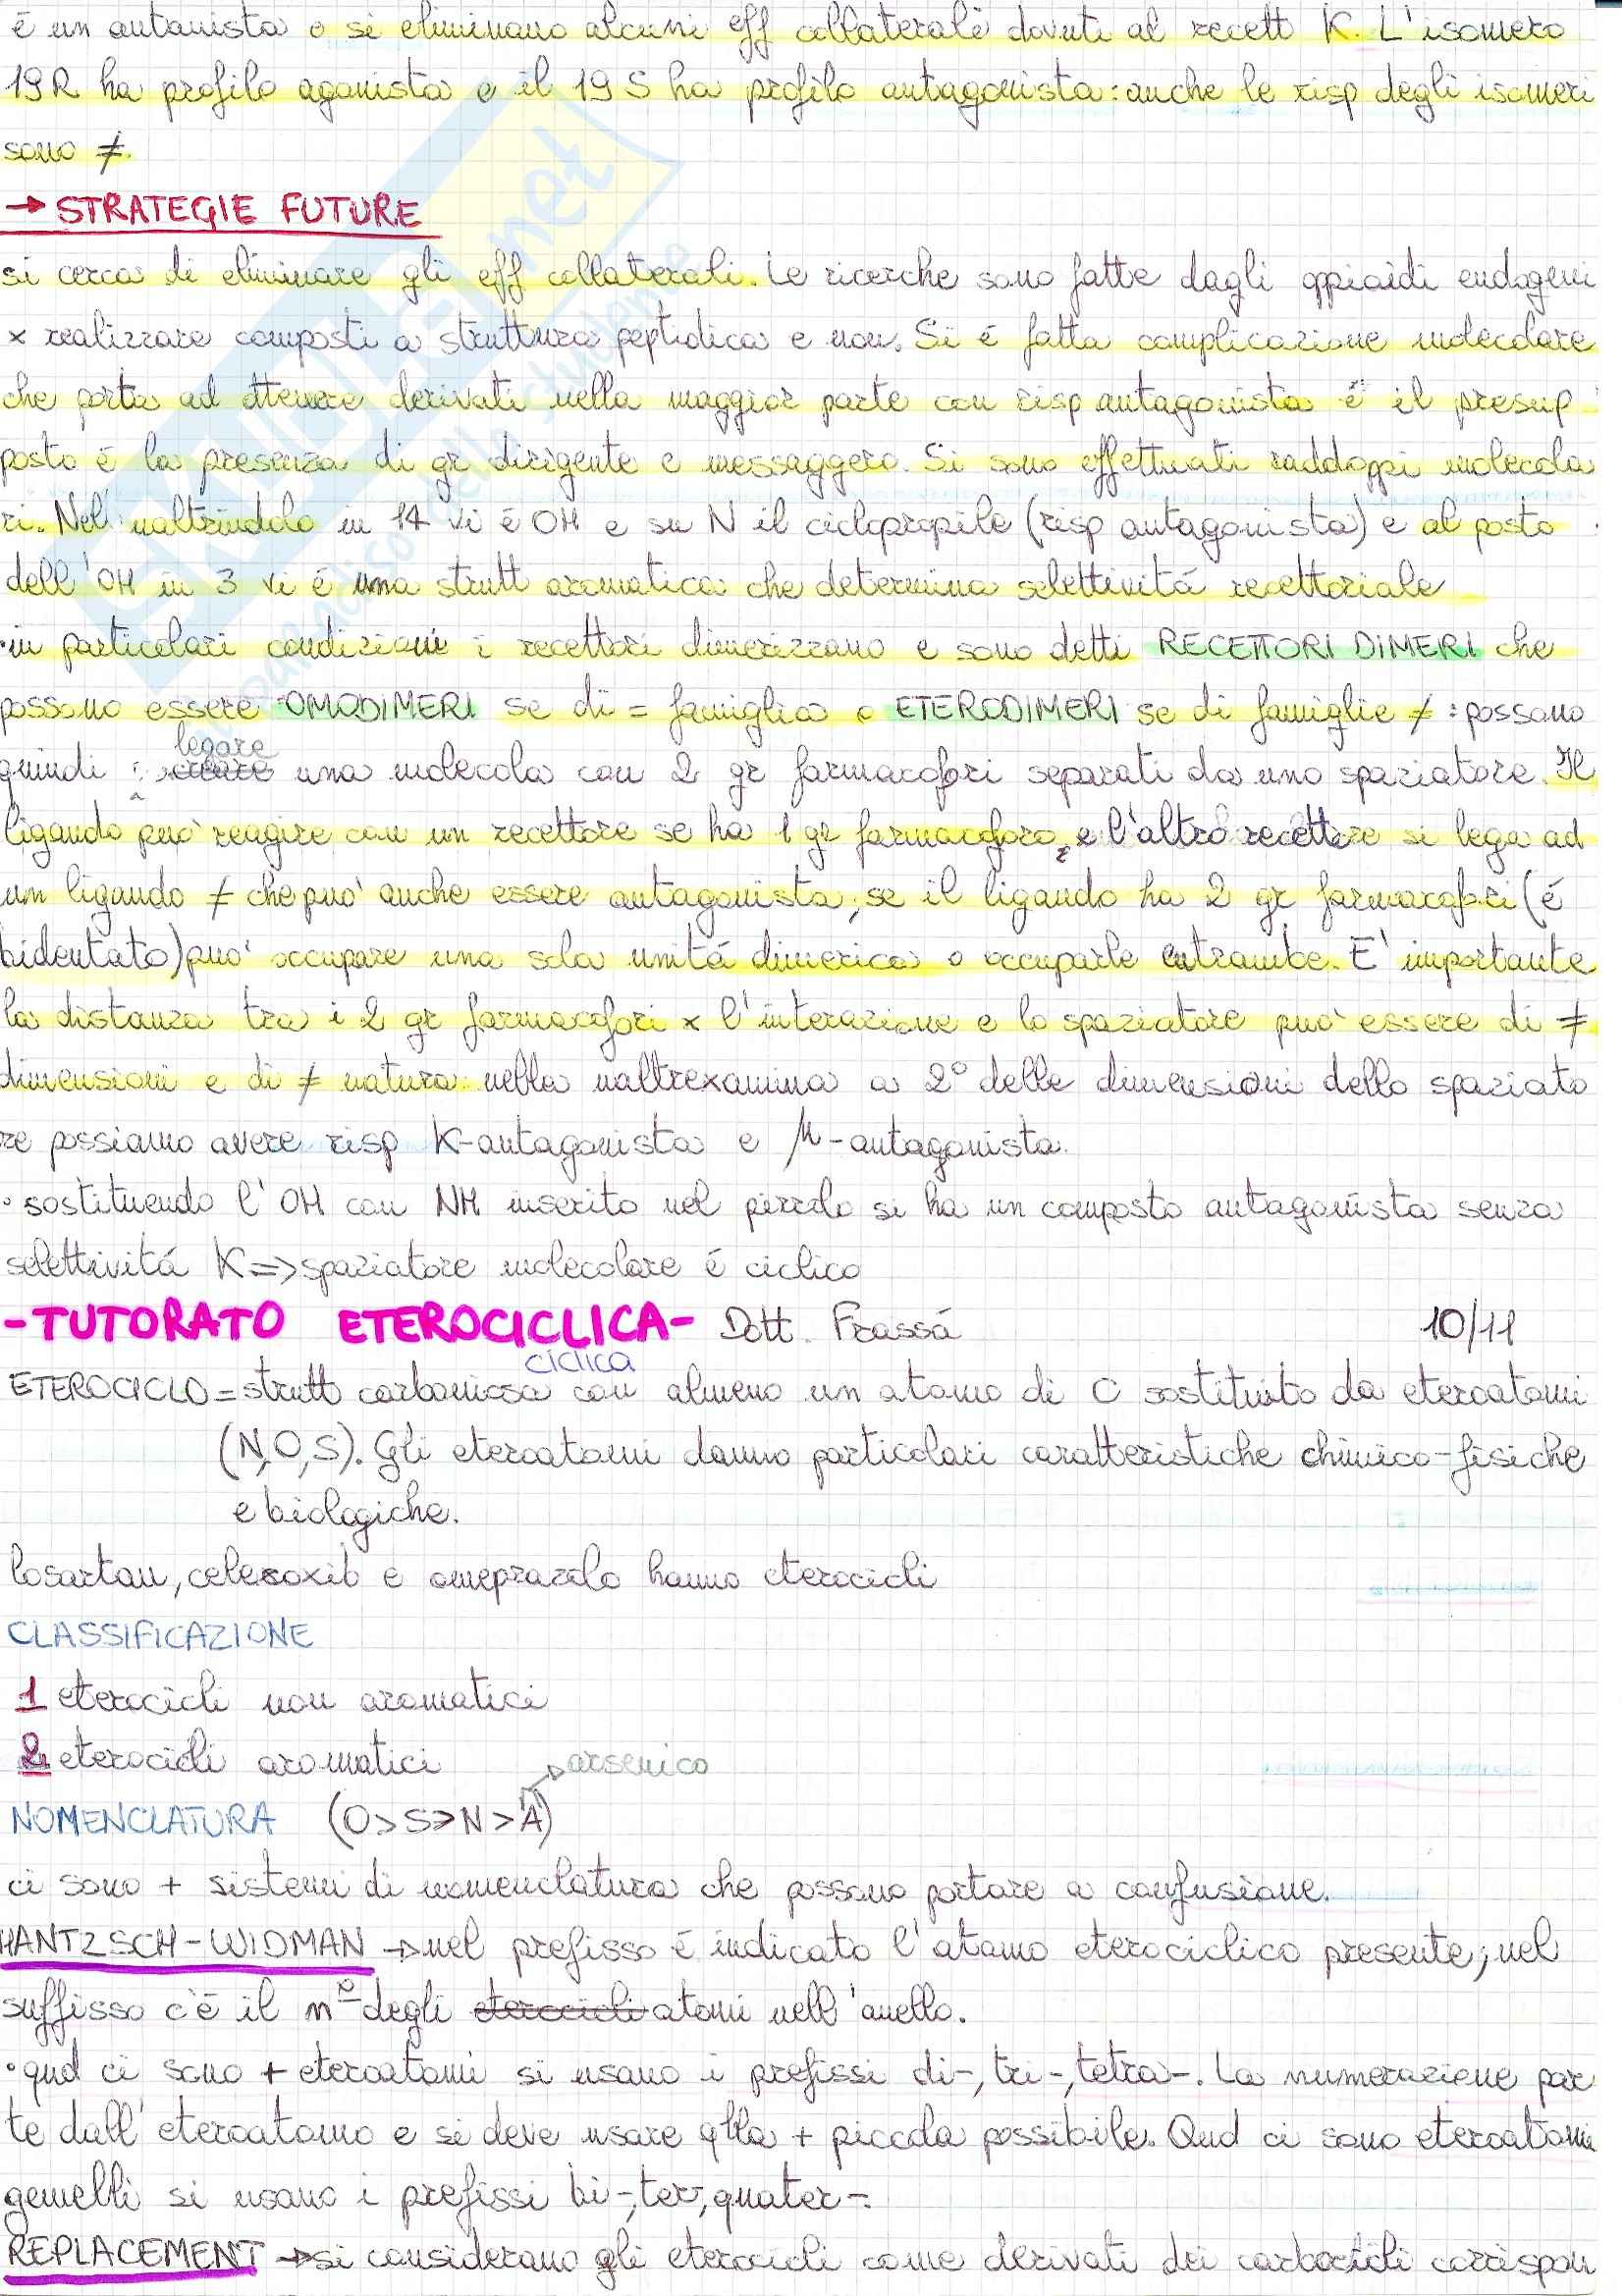 é un antanista o si eliminano alcuni eff collaterali dovuti al recett K. L'isomero
19R ha profilo agonista e il 19S ha profilo antagonista: anche le risp degli isomeri
sono ≠.
→ STRATEGIE FUTURE
si cerca di eliminare gli eff collaterali. Le ricerche sono fatte dagli oppioidi endogeni
x realizzare composti a struttura peptidica e non. Si é fatta complicazione molecolare
che porta ad ottenere derivati nella maggior parte con risp antagonista é il presup
posto é la presenza di gr dirigente e messaggero. Si sono effettuati raddoppi molecola
ri. Nel naltrindolo in 14 vi é OH e su N il ciclopropile (risp antagonista) e al posto
dell'OH in 3 vi é una strutt aromatica che determina selettivitá recettoriale
·in particolari condizioni i recettori dimerizzano e sono detti RECETTORI DIMERI che
possono essere OMODIMERI se di = famiglia o ETERODIMERI se di famiglie ≠ : possono
legare
quindi una molecola con 2 gr farmacofori separati da uno spaziatore. Il
ligando puo' reagire con un recettore se ha 1 gr farmacoforo e l'altro recettore si lega ad
un ligando ≠ che puo' anche essere antagonista; se il ligando ha 2 gr farmacofori (é
bidentato) puo' occupare una sola unitá dimerica o occuparle entrambe. E' importante
la distanza tra i 2 gr farmacofori x l'interazione e lo spaziatore puo' essere di ≠
dimensioni e di ≠ natura: nella naltrexamina a 2° delle dimensioni dello spaziato
re possiamo avere risp K-antagonista e μ-antagonista.
· sostituendo l'OH con NH inserito nel pirrolo si ha un composto antagonista senza
selettivitá K => spaziatore molecolare é ciclico
-TUTORATO ETEROCICLICA- Dott. Frassá 10/11
ciclica
ETEROCICLO = strutt carboniosa con almeno un atomo di C sostituito da eteroatomi
(N,O,S). Gli eteroatomi danno particolari caratteristiche chimico-fisiche
e biologiche.
losartan, celecoxib e omeprazolo hanno eterocicli
CLASSIFICAZIONE
1 eterocicli non aromatici
2 eterocicli aromatici
arsenico
NOMENCLATURA (O>S>N>A)
ci sono + sistemi di nomenclatura che possono portare a confusione.
HANTZSCH-WIDMAN → nel prefisso é indicato l'atomo eterociclico presente; nel
suffisso c'é il n° degli eterocicli atomi nell'anello.
· qnd ci sono + eteroatomi si usano i prefissi di-, tri-, tetra-. La numerazione par
te dall'eteroatomo e si deve usare qlla + piccola possibile. Qnd ci sono eteroatomi
gemelli si usano i prefissi bi-, ter-, quater-.
REPLACEMENT → si considerano gli eterocicli come derivati dei carbocicli corrispon